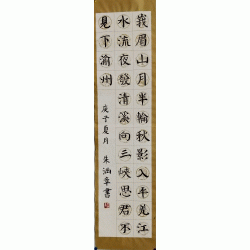 峩眉山月半輪秋影入平羌江
水流夜發清溪向三峽思君不
見下渝州
庚子夏月 朱涵章書